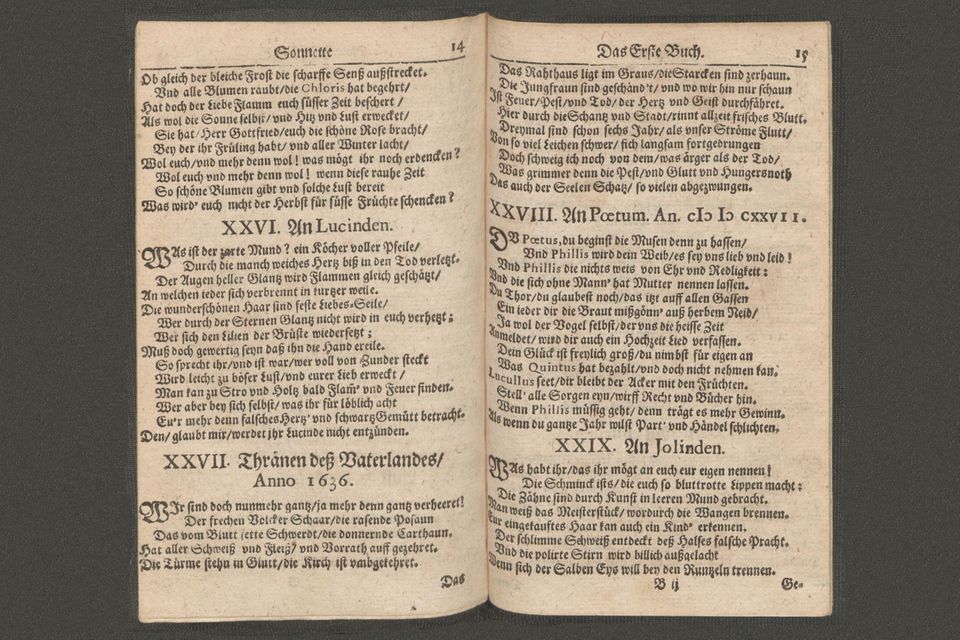 Sonnette 14
Ob gleich der bleiche Frost die scharffe Senß außstrecket.
Vnd alle Blumen raubt/die Chloris hat begehrt/
Hat doch der Liebe Flamm euch süsser Zeit beschert/
Als wol die Sonne selbst/vnd Hitz vnd Lust erwecket/
Sie hat/Herr Gottfried/euch die schöne Rose bracht/
Bey der ihr Früling habt/vnd aller Winter lacht/
Wol euch/vnd mehr denn wol! was mögt ihr noch erdencken?
Wol euch vnd mehr denn wol! wenn diese rauhe Zeit
So schöne Blumen gibt vnd solche Lust bereit
Was wird' euch nicht der Herbst für süsse Früchte schencken?
XXVI. An Lucinden.
WAs ist der zarte Mund? ein Köcher voller Pfeile/
Durch die manch weiches Hertz biß in den Tod verletzt.
Der Augen heller Glantz wird Flammen gleich geschätzt/
An welchen ieder sich verbrennt in kurtzer weile.
Die wunderschönen Haar sind feste Liebes-Seile/
Wer durch der Sternen Glantz nicht wird in euch verhetzt;
Wer sich den Lilien der Brüste wiedersetzt;
Muß doch gewertig seyn daß ihn die Hand ereile.
So sprecht ihr/vnd ist war/wer voll von Zunder steckt
Wird leicht zu böser Lust/vnd eurer Lieb erweckt/
Man kan zu Stro vnd Holtz bald Flam̃' vnd Feuer finden.
Wer aber bey sich selbst/was ihr für löblich acht
Eu'r mehr denn falsches Hertz' vnd schwartz Gemütt betracht.
Den/glaubt mir/werdet ihr Lucinde nicht entzünden.
XXVII. Thränen deß Vaterlandes/
Anno 1636.
WIr sind doch nunmehr gantz/ja mehr denn gantz verheeret!
Der frechen Völcker Schaar/die rasende Posaun
Das vom Blutt fette Schwerdt/die donnernde Carthaun.
Hat aller Schweiß vnd Fleiß/vnd Vorrath auff gezehret.
Die Türme stehn in Glutt/die Kirch ist vmbgekehret.
Das
Das Erste Buch. 15
Das Rahthaus ligt im Graus/die Starcken sind zerhaun.
Die Jungfraun sind geschänd't/vnd wo wir hin nur schaun
Ist Feuer/Pest/vnd Tod/der Hertz vnd Geist durchfähret.
Hier durch die Schantz vnd Stadt/rinnt allzeit frisches Blutt.
Dreymal sind schon sechs Jahr/als vnser Ströme Flutt/
Von so viel Leichen schwer/sich langsam fortgedrungen
Doch schweig ich noch von dem/was ärger als der Tod/
Was grimmer denn die Pest/vnd Glutt vnd Hungersnoth
Das auch der Seelen Schatz/so vielen abgezwungen.
XXVIII. An Pœtum. An. cIↄ Iↄ CXXVII.
OB Pœtus, du beginst die Musen denn zu hassen/
Vnd Phillis wird dein Weib/es sey vns lieb vnd leid!
Vnd Phillis die nichts weis von Ehr vnd Redligkeit:
Vnd die sich ohne Mann' hat Mutter nennen lassen.
Du Thor/du glaubest noch/das itzt auff allen Gassen
Ein ieder dir die Braut mißgönn' auß herbem Neid/
Ja wol der Vogel selbst/der vns die heisse Zeit
Anmeldet/wird dir auch ein Hochzeit Lied verfassen.
Dein Glück ist freylich groß/du nimbst für eigen an
Was Quintus hat bezahlt/vnd doch nicht nehmen kan.
Lucullus seet/dir bleibt der Acker mit den Früchten.
Stell' alle Sorgen eyn/wirff Recht vnd Bücher hin.
Wenn Phillis müssig geht/denn trägt es mehr Gewinn.
Als wenn du gantze Jahr wilst Part' vnd Händel schlichten.
XXIX. An Jolinden.
WAs habt ihr/das ihr mögt an euch eur eigen nennen!
Die Schminck ists/die euch so bluttrotte Lippen macht:
Die Zähne sind durch Kunst in leeren Mund gebracht.
Man weiß das Meisterstück/wordurch die Wangen brennen.
Eur eingekauftes Haar kan auch ein Kind' erkennen.
Der schlimme Schweiß entdeckt deß Halses falsche Pracht.
Vnd die polirte Stirn wird billich außgelacht
Wenn sich der Salben Eys will bey den Runtzeln trennen.
B ij Ge-